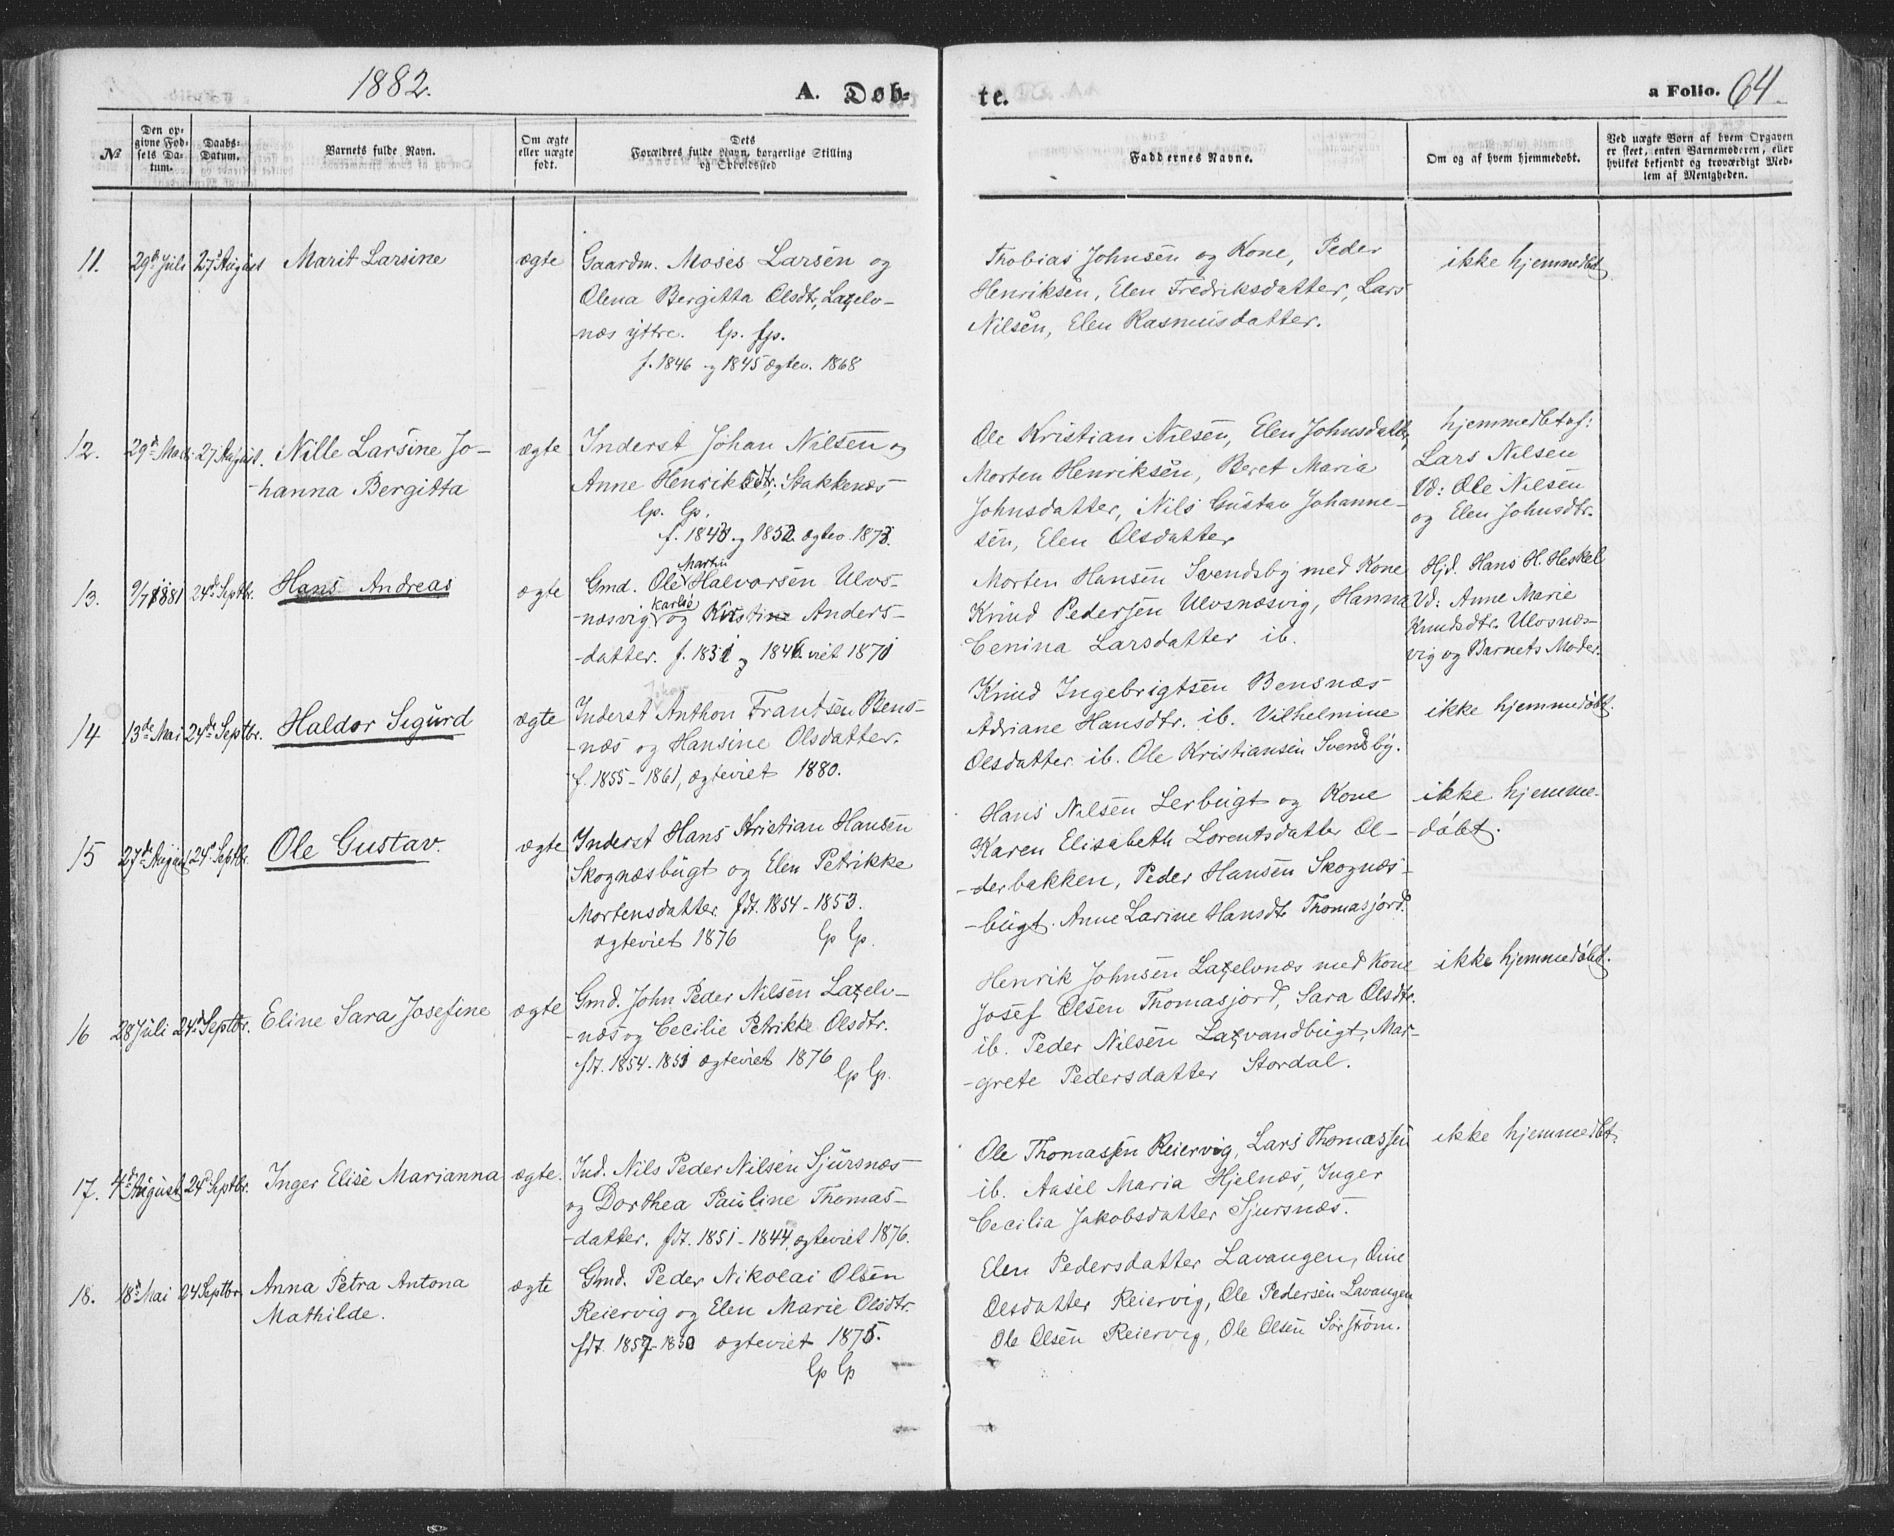 1882.
A. Døb-
te.
a Folio. 64.
№
Den op-
givne Fød-
sels Da-
tum.
Daabs-
Datum.
Barnets fulde Navn.
Om ægte
eller uægte
født.
Dets
Forældres fulde Navn, borgerlige Stilling
og Opholdssted
Faddernes Navne.
Om og af hvem hjemmedøbt.
Ved uægte Børn af hvem Opgaven
er skeet, enten Barnemoderen, eller
hvilket bekjendt og troværdigt Med-
lem af Menigheden.
11. 29d Juli 27d August Marit Larsine ægte
Gaardm. Moses Larsen og
Olena Bergitta Olsdtr, Laxelv-
næs yttre. lp. fp.
f. 1846 og 1845 ægtev. 1868
Thobias Johnsen og Kone, Peder
Henriksen, Elen Fredriksdatter, Lars
Nilsen, Elen Rasmusdatter.
ikke hjemmedbt
12. 29d Mai 27 August. Nille Larsine Jo-
-hanna Bergitta
ægte
Inderst Johan Nilsen og
Anne Henriksdtr, Stakkenæs
lp. lp.
f. 1843 og 1852 ægtev. 1873.
Ole Kristian Nilsen, Elen Johnsdatter,
Morten Henriksen, Beret Maria
Johnsdatter, Nils Gustav Johanne-
sen, Elen Olsdatter
hjemmedbt af:
Lars Nilsen
Vd: Ole Nilsen
og Elen Johnsdtr.
13. 9/7 1881 24de Septbr. Hans Andreas ægte
Martin
Gmd. Ole Halvorsen Ulvs-
Karlie
-næsvig og Kirstine Anders-
-datter. f. 1851 og 1846 viet 1871
Morten Hansen Svendsby med Kone
Knud Pedersen Ulvsnæsvig, Hanna
Cenina Larsdatter ib.
Hjd. Hans H. Heskel
Vd: Anne Marie
Knudsdtr. Ulvsnæs-
vig og Barnets Moder.
14 13de Mai 24de Septbr. Haldor Sigurd ægte
Johan
Inderst Anthon Frantsen Bens-
-næs og Hansine Olsdatter.
f. 1855 - 1861, ægteviet 1880.
Knud Ingebrigtsen Bensnæs
Adriane Hansdtr. ib. Vilhelmine
Olsdatter ib. Ole Kristiansen Svendsby.
ikke hjemmedøbt.
15 27de August 24d Septbr. Ole Gustav. ægte
Inderst Hans Kristian Hansen
Skognæsbugt og Elen Petrikke
Mortensdatter fdt. 1854 - 1853.
ægteviet 1876 lp lp.
Hans Nilsen Lerbugt og Kone
Karen Elisabeth Lorentsdatter Ol-
-derbakken, Peder Hansen Skognæs-
-bugt. Anne Larine Hansdtr Thomasjord.
ikke hjemme-
-døbt.
16 28 Juli 24d Septbr. Eline Sara Josefine ægte
Gmd. John Peder Nilsen Laxelv-
-næs og Cecilie Petrikke Olsdtr.
fdt. 1854 - 1851 ægteviet 1876
lp lp.
Henrik Johnsen Laxelvnæs med Kone
Josef Olsen Thomasjord, Sara Olsdtr.
ib. Peder Nilsen Laxvandbugt, Mar-
-grete Pedersdatter Stordal.
ikke hjemmedøbt.
17. 4d August 24d Septbr. Inger Elise Marianna ægte.
Ind. Nils Peder Nilsen Sjursnæs
og Dorthea Pauline Thomas-
-datter. fdt. 1851 - 1844, ægteviet 1876.
Ole Thomassen Reiervig, Lars Thomassen
ib. Aasel Maria Hjelnæs, Inger
Cecilia Jakobsdatter Sjursnæs.
ikke hjemmedbt.
18. 18d Mai 24 Septbr. Anna Petra Antona
Mathilde.
ægte
Gmd. Peder Nikolai Olsen
Reiervig og Elen Marie Olsdtr.
fdt. 1857 - 1850 ægteviet 1875.
lp lp
Elen Pedersdatter Lavangen, Oine
Olsdatter Reiervig, Ole Pedersen Lavangen
Ole Olsen Reiervig, Ole Olsen Sørstrøm.